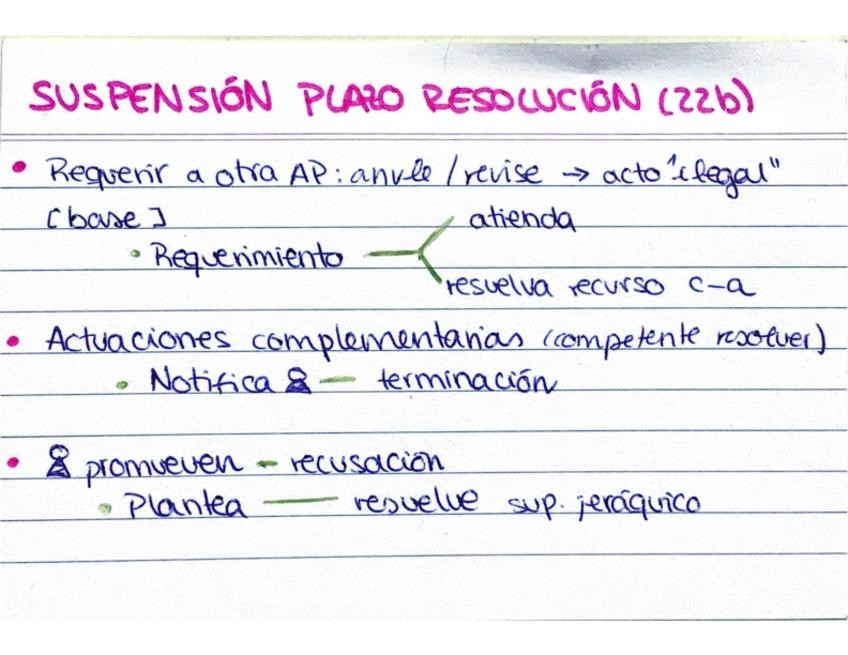 SUSPENSIÓN PLAZO RESOLUCIÓN (22b)
• Requerir a otra AP: anule / revise → acto "ilegal"
[base]
atienda
• Requerimiento
resuelva recurso c-a
• Actuaciones complementarias (competente resolver)
• Notifica — terminación
• promueven - recusación
• Plantea — resuelve sup. jeráquico